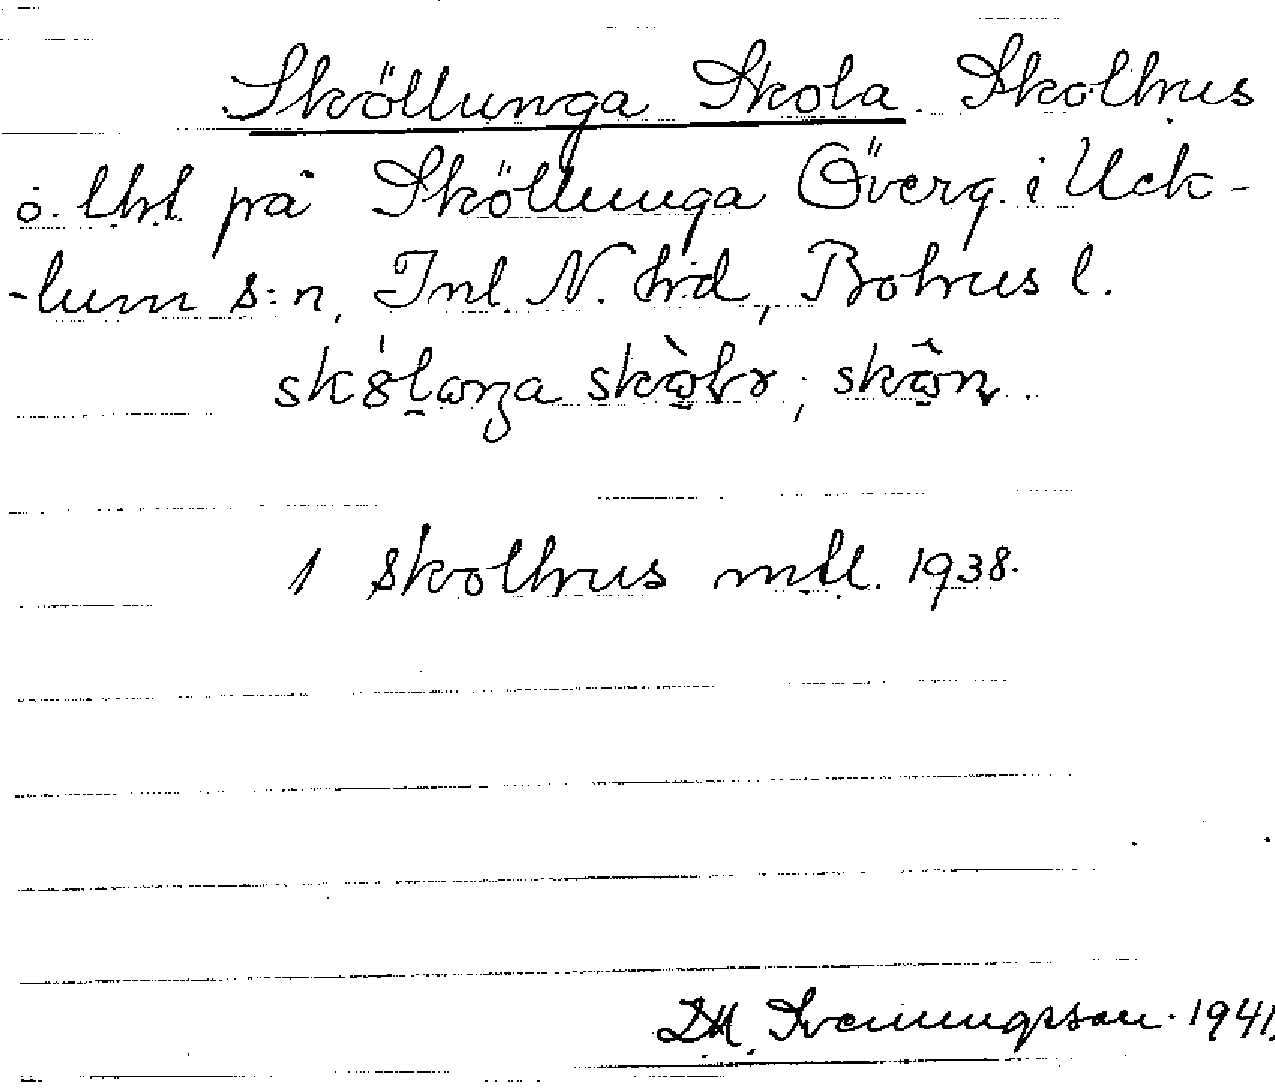 Sköllunga Skola. Skolhus
o. lht. på Sköllunga Överg. i Uck-
-lum s:n, Inl. N. hd, Bohus l.
1 skolhus mtl. 1938.
D.M. Svenningsson. 1941.